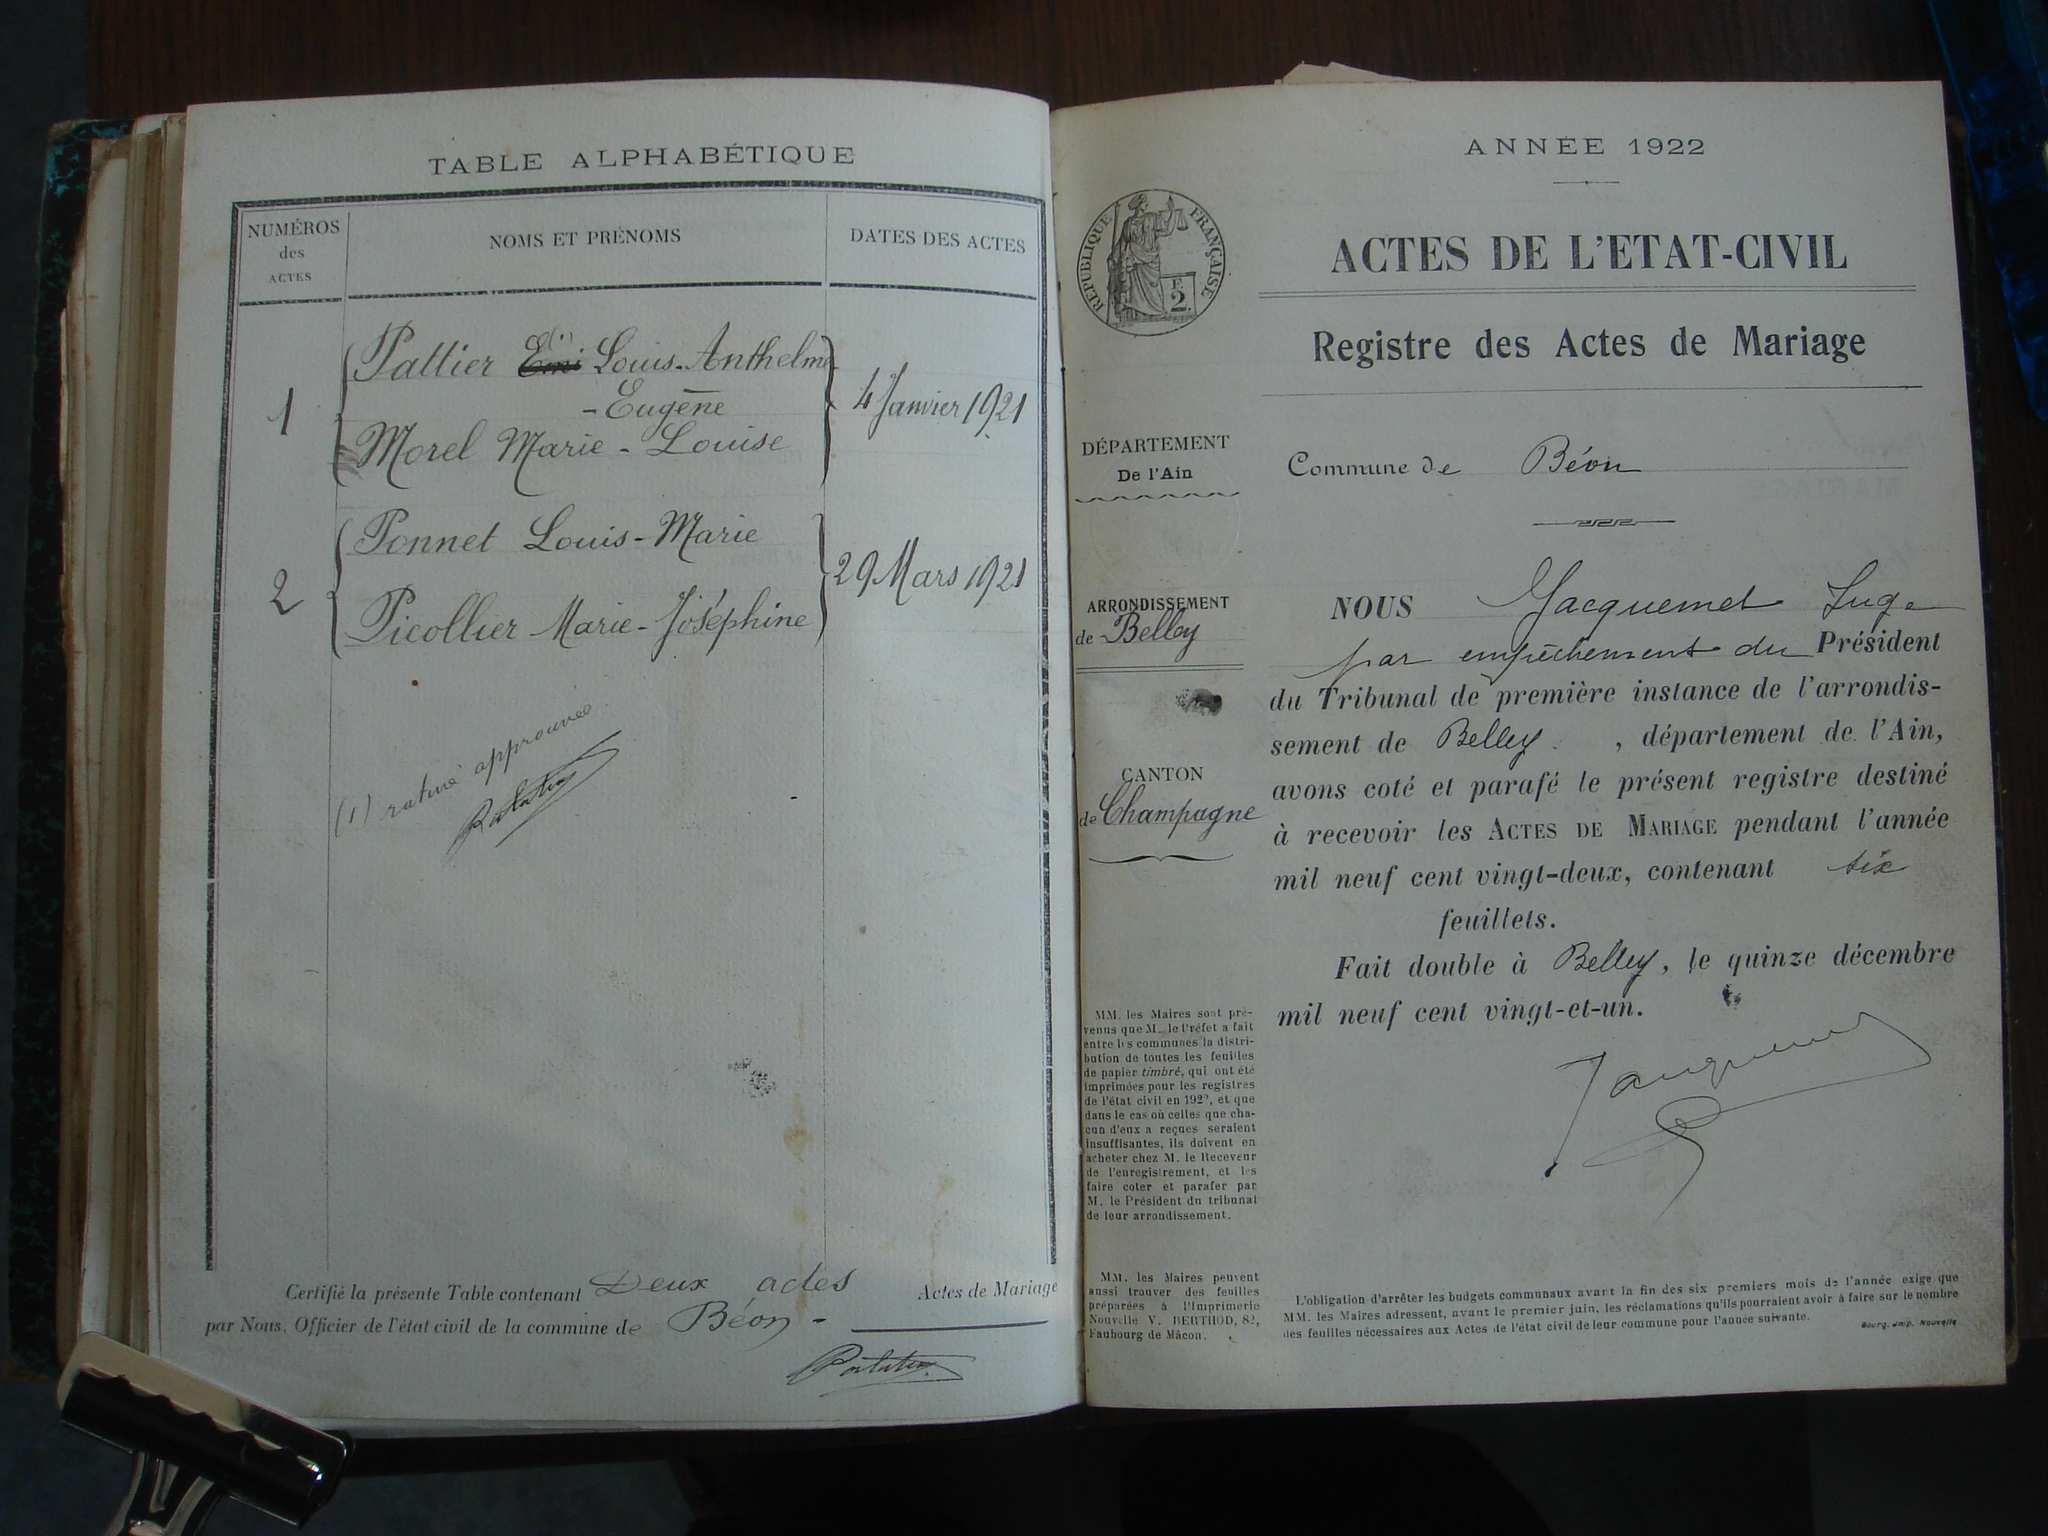 TABLE ALPHABÉTIQUE
NUMÉROS
des
ACTES
NOMS ET PRÉNOMS
DATES DES ACTES
1
Pattier Emi (1) Louis-Anthelme
-Eugène
Morel Marie-Louise
4 Janvier 1921
2
Ponnet Louis-Marie
Picollier Marie-Joséphine
29 Mars 1921
(1) rature approuvée
Certifié la présente Table contenant Deux actes Actes de Mariage
par Nous, Officier de l'état civil de la commune de Béon -
ANNÉE 1922
RÉPUBLIQUE FRANÇAISE
F.
2
ACTES DE L'ETAT-CIVIL
Registre des Actes de Mariage
DÉPARTEMENT
De l'Ain
Commune de Béon
ARRONDISSEMENT
de Belley
CANTON
de Champagne
NOUS Jacquemet Juge
par empêchement du Président
du Tribunal de première instance de l'arrondis-
sement de Belley, département de l'Ain,
avons coté et parafé le présent registre destiné
à recevoir les ACTES DE MARIAGE pendant l'année
mil neuf cent vingt-deux, contenant six
feuillets.
Fait double à Belley, le quinze décembre
mil neuf cent vingt-et-un.
Jacquemet
MM. les Maires sont pré-
venus que M. le Préfet a fait
entre les communes la distri-
bution de toutes les feuilles
de papier timbré, qui ont été
imprimées pour les registres
de l'état civil en 1922, et que
dans le cas où celles que cha-
cun d'eux a reçues seraient
insuffisantes, ils doivent en
acheter chez M. le Receveur
de l'enregistrement, et les
faire coter et parafer par
M. le Président du tribunal
de leur arrondissement.
MM. les Maires peuvent
aussi trouver des feuilles
préparées à l'Imprimerie
Nouvelle V. BERTHOD, 82,
Faubourg de Mâcon.
L'obligation d'arrêter les budgets communaux avant la fin des six premiers mois de l'année exige que
MM. les Maires adressent, avant le premier juin, les réclamations qu'ils pourraient avoir à faire sur le nombre
des feuilles nécessaires aux Actes de l'état civil de leur commune pour l'année suivante.
Bourg, imp. Nouvelle